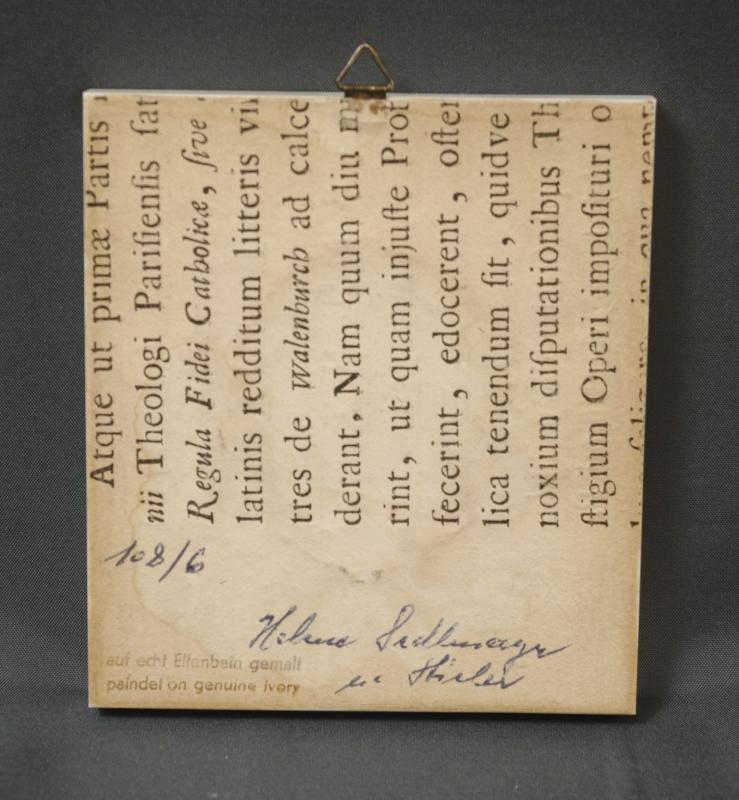 Atque ut primæ Partis
nii Theologi Parisiensis fat
Regula Fidei Catholicæ, ſive
latinis redditum litteris vi
tres de Walenburch ad calce
derant, Nam quum diu m
rint, ut quam injuſte Prot
fecerint, edocerent, oſten
lica tenendum ſit, quidve
noxium diſputationibus Th
ſtigium Operi impoſituri o
in qua nempe
108/6
Helene Sedlmayr
n. Stieler
auf echt Elfenbein gemalt
paindel on genuine ivory